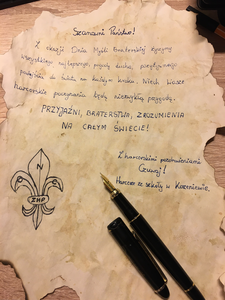 Szanowni Państwo!
Z okazji Dnia Myśli Braterskiej życzymy
wszystkiego najlepszego, pogody ducha, pozytywnego
podejścia do świata na każdym kroku. Niech Wasze
harcerskie poczynania będą niezwykłą przygodą.
PRZYJAŹNI, BRATERSTWA, ZROZUMIENIA
NA CAŁYM ŚWIECIE!
Z harcerskimi pozdrowieniami
Czuwaj!
Harcerze ze szkoły w
O N C
ZHP